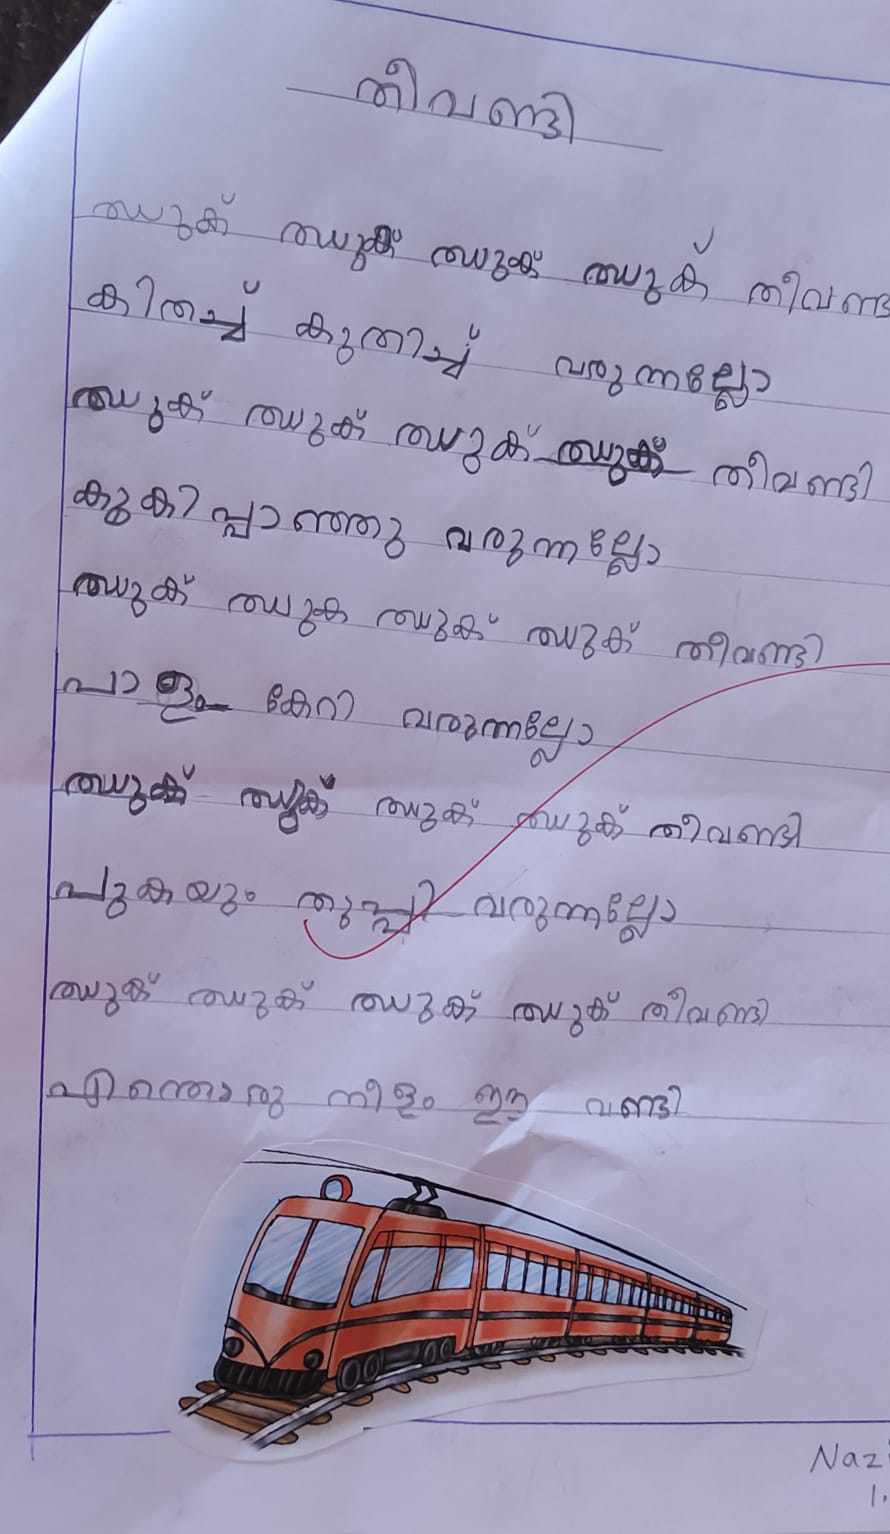 തീവണ്ടി
ഝുക് ഝുക് ഝുക് ഝുക് തീവണ്ട
കിതച്ച് കുതിച്ച് വരുന്നല്ലോ
ഝുക് ഝുക് ഝുക് ഝുക് തീവണ്ടി
കൂകി പ്പാഞ്ഞു വരുന്നല്ലോ
ഝുക് ഝുക ഝുക് ഝുക് തീവണ്ടി
പാളം കേറി വരുന്നല്ലോ
ഝുക് ഝുക് ഝുക് ഝുക് തീവണ്ടി
പുകയും തുപ്പി വരുന്നല്ലോ
ഝുക് ഝുക് ഝുക് ഝുക് തീവണ്ടി
എന്തൊരു നീളം ഈ വണ്ടി
Naz
1.